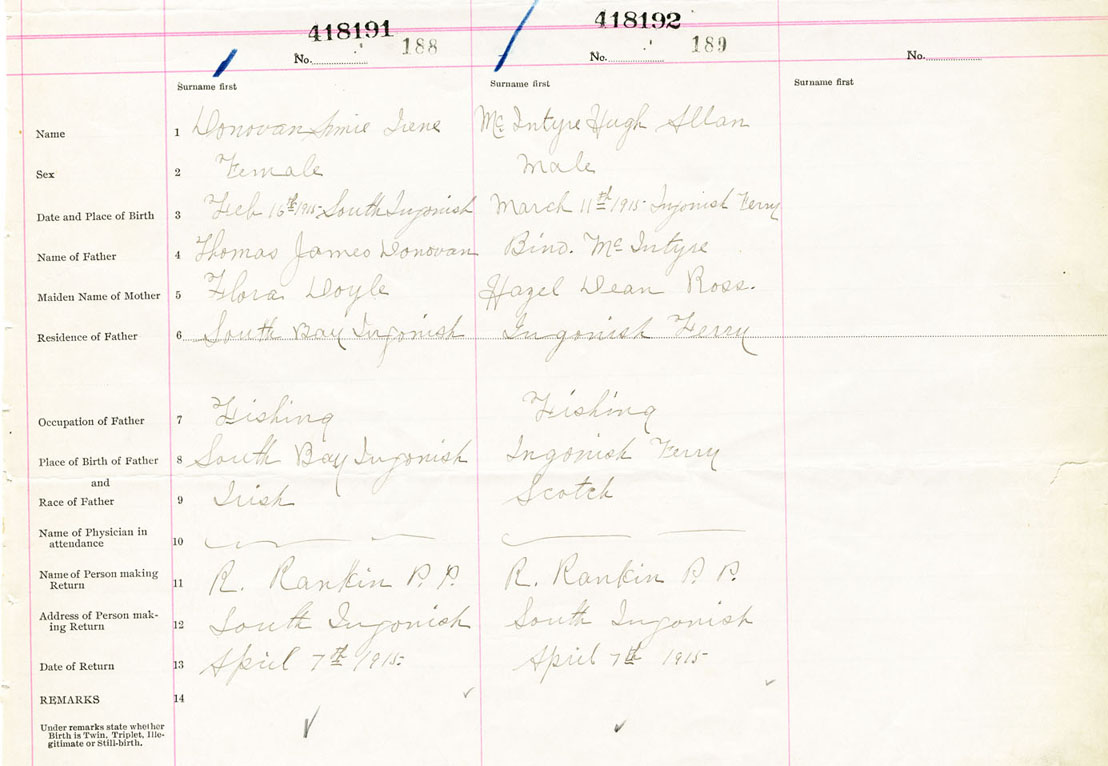 418191 418192
188 189
No. No. No.
Surname first Surname first Surname first
Name 1 Donovan Irene McIntyre Hugh Allan
Sex 2 Female Male
Date and Place of Birth 3 Feb 16th 1915 South Ingonish March 11th 1915 Ingonish Ferry
Name of Father 4 Thomas James Donovan McIntyre
Maiden Name of Mother 5 Flora Doyle Hazel Dean Ross.
Residence of Father 6 South Bay Ingonish Ingonish Ferry
Occupation of Father 7 Fishing Fishing
Place of Birth of Father 8 South Bay Ingonish Ingonish Ferry
and
Race of Father 9 Irish Scotch
Name of Physician in
attendance 10
Name of Person making
Return 11 R. Rankin P. P. R. Rankin P. P.
Address of Person mak-
ing Return 12 South Ingonish South Ingonish
Date of Return 13 April 7th 1915 April 7th 1915
REMARKS 14
Under remarks state whether
Birth is Twin, Triplet, Ille-
gitimate or Still-birth.